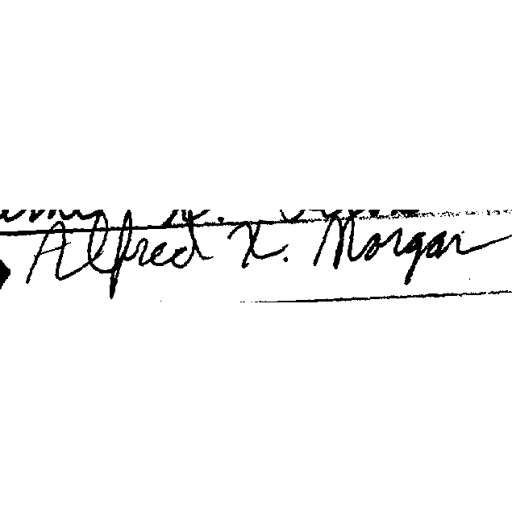 Alfred X. Morgan